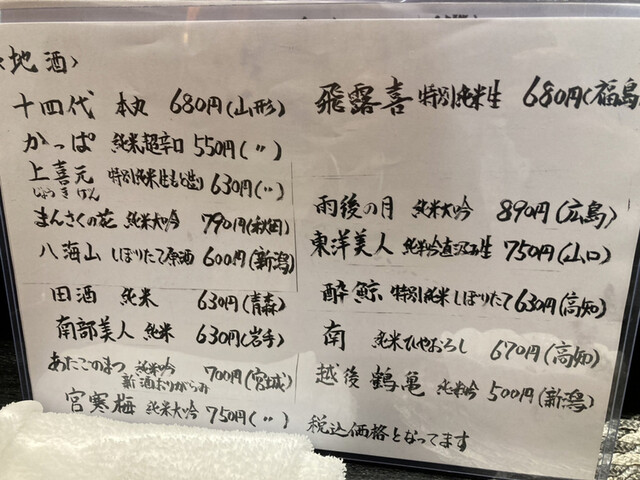 〈地酒〉
十四代 本丸 680円(山形)
かっぱ 純米超辛口 550円(〃)
上喜元 特別純米生もと造り 630円(〃)
じょうきげん
まんさくの花 純米大吟 790円(秋田)
八海山 しぼりたて原酒 600円(新潟)
田酒 純米 630円(青森)
南部美人 純米 630円(岩手)
あたごのまつ 純米吟 新酒おりがらみ 700円(宮城)
宮寒梅 純米大吟 750円(〃)
飛露喜 特別純米生 680円(福島
雨後の月 純米大吟 890円(広島)
東洋美人 純米吟直汲み生 750円(山口)
酔鯨 特別純米しぼりたて 630円(高知)
南 純米ひやおろし 670円(高知)
越後鶴亀 純米吟 500円(新潟)
税込価格となってます